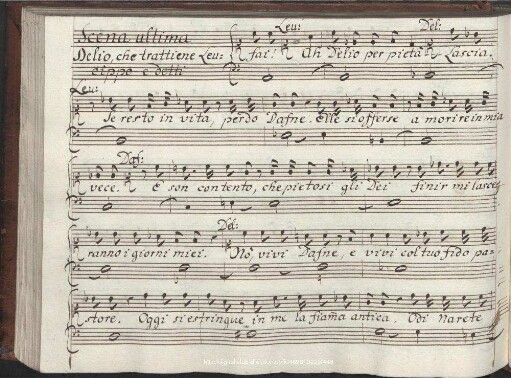 Leu: Del:
Scena ultima
Delio, che trattiene Leu: fai! Ah Delio per pietà Lascia.
cippo e detti
Leu:
Se resto in vita, perdo Dafne. Elle si offerse a morire in mia
Daf:
vece. E son contento, che pietosi gli Dei finir mi lasce
ranno i giorni miei. Del: Nò, vivi Dafne, e vivi col tuo fido pa-
store. Oggi si estringue in me la fiama antica. Odi Narete